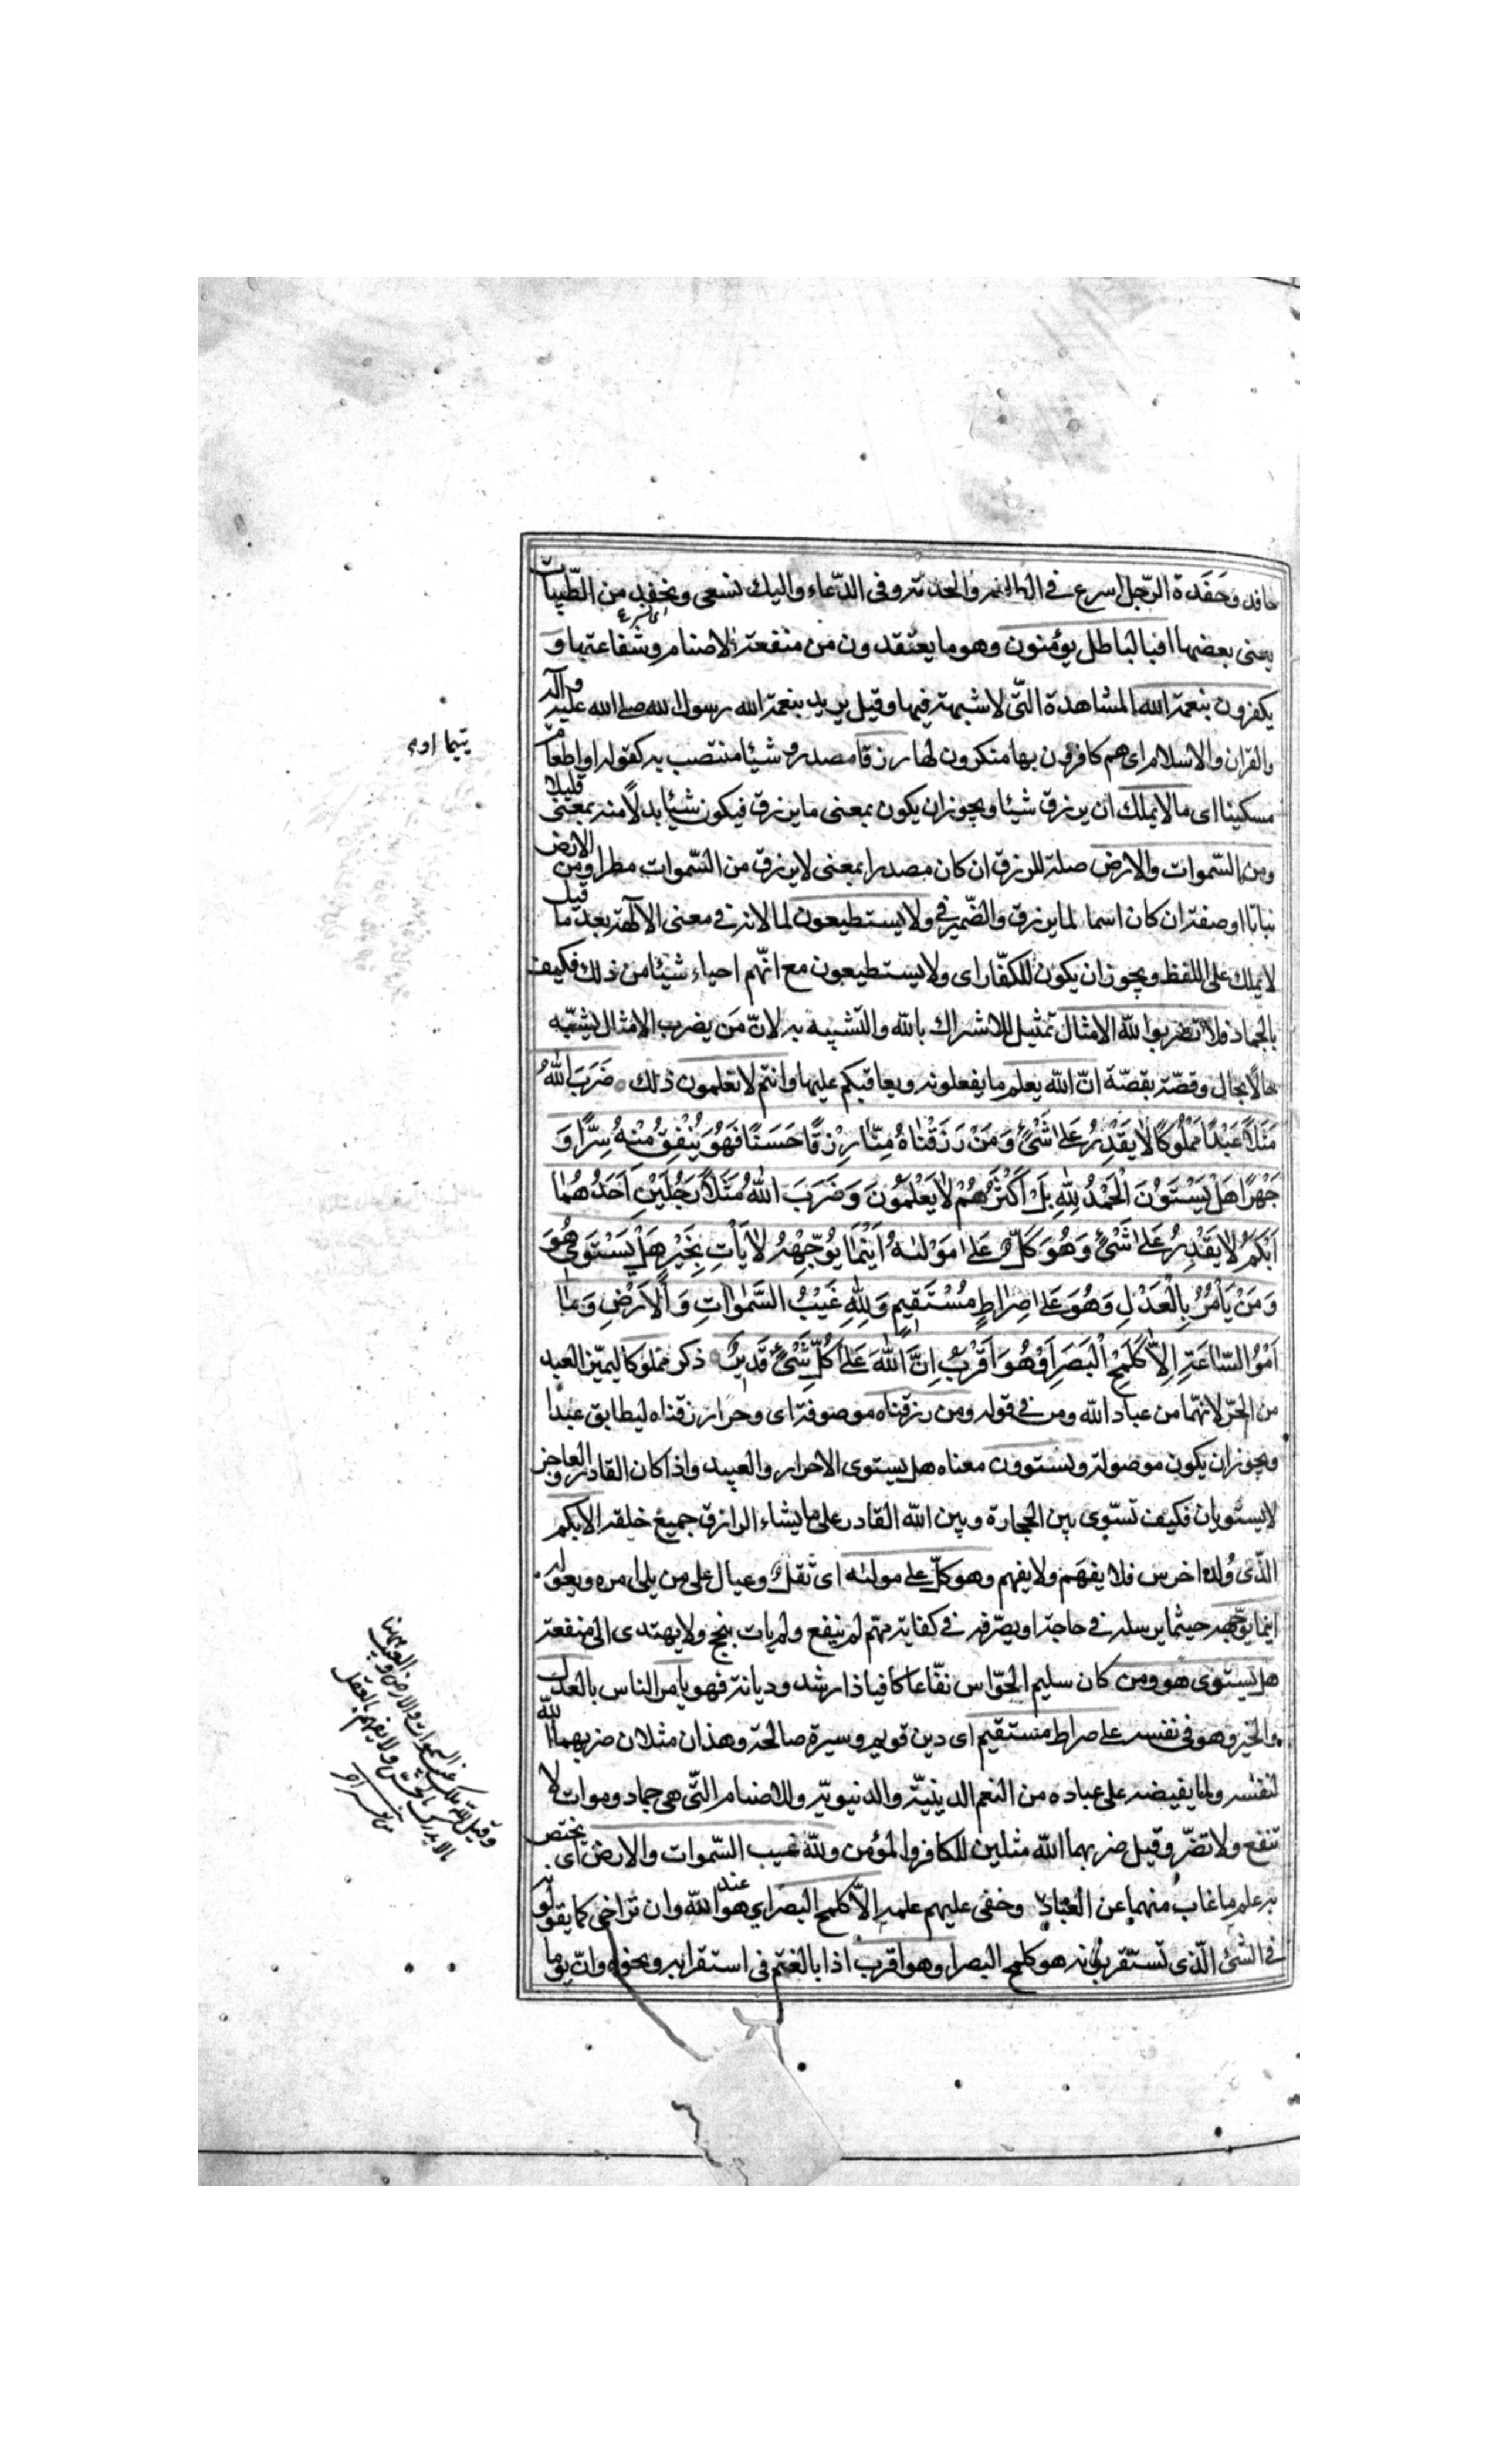 حافد وحَفَدة الرّجل اسرع في الطاعة والخدمة وفى الدّعاء واليك نسعى ونحفد من الطّيبات
اى نسرع
يعنى بعضها افبالباطل يؤمنون وهو ما يعتقدون من منفعة الاصنام وشفاعتها و
يكفرون بنعمة الله المشاهدة الّتى لا شبهة فيها وقيل يريد بنعمة الله رسول الله صلى الله عليه وآله
والقران والاسلام اى هم كافرون بها منكرون لها رزقا مصدر و شيئا منتصب به كقوله او اطعام
يتيما او م
مسكينا اى ما لا يملك ان يرزق شيئا ويجوز ان يكون بمعنى ما يرزق فيكون شيئا بدلًا منه بمعنى قليلا
ومن السّموات والارض صلة للرزق ان كان مصدرا بمعنى لا يرزق من السّموات مطرا ومن الارض
نباتا او صفة ان كان اسما لما يرزق والضّمير في ولا يستطيعون لما لانه في معنى الآلهة بعد ما قيل
لا يملك على اللفظ ويجوز ان يكون للكفّار اى ولا يستطيعون مع انّهم احياء شيئا من ذلك فكيف
بالجماد فلا تضربوا لله الامثال تمثيل للاشراك بالله والتشبيه به لانّ مَن يضرب الامثال يشبّه
حالًا بحال وقصّة بقصّة انّ الله يعلم ما يفعلونه ويعاقبكم عليها وانتم لا تعلمون ذلك ضَرَبَ اللهُ
مَثَلًا عَبْدًا مَمْلُوكًا لا يَقْدِرُ عَلى شَيْئٍ وَمَنْ رَزَقْناهُ مِنّا رِزْقًا حَسَنًا فَهُوَ يُنْفِقُ مِنْهُ سِرًّا وَ
جَهْرًا هَلْ يَسْتَوُنَ الْحَمْدُ لِلهِ بَلْ اَكْثَرُهُمْ لا يَعْلَمُونَ وَضَرَبَ اللهُ مَثَلًا رَجُلَيْنِ اَحَدُهُما
اَبْكَمُ لا يَقْدِرُ عَلى شَيْئٍ وَهُوَ كَلٌّ عَلى مَوْلٰىهُ اَيْنَما يُوَجِّهْهُ لا يَأْتِ بِخَيْرٍ هَلْ يَسْتَوِى هُوَ
وَمَنْ يَأمُرُ بِالْعَدْلِ وَهُوَ عَلى صِراطٍ مُسْتَقيمٍ وَلِلهِ غَيْبُ السَّمٰواتِ وَالْاَرْضِ وَما
اَمْرُ السّاعَةِ اِلاّ كَلَمْحِ الْبَصَرِ اَوْ هُوَ اَقْرَبُ اِنَّ اللهَ عَلى كُلِّ شَيْئٍ قَديرٌ ذكر مملوكا ليميّز العبد
من الحرّ لانهما من عباد الله ومن في قوله ومن رزقناه موصوفة اى وحرّا رزقناه ليطابق عبدًا
ويجوز ان يكون موصولة ويستوون معناه هل يستوى الاحرار والعبيد واذا كان القادر والعاجز
لا يستويان فكيف تسّوى بين الحجارة وبين الله القادر على ما يشاء الرازق جميع خلقه الابكم
الّذى وُلد اخرس فلا يفهَم ولا يفهم وهو كلّ على مولىه اى ثقل وعيال على من يلى امره ويعوله
اينما يوّجهه حيثما يرسله في حاجة او يصّرفه في كفاية مهّم لم ينفع ولم يات بنجح ولا يهتدى الى منفعة
هل يستوى هو ومن كان سليم الحوّاس نفّاعا كافيا ذا رشد وديانة فهو يامر الناس بالعدل
والخير وهو في نفسه على صراط مستقيم اى دين قويم وسيرة صالحة وهذان مثلان ضربهما الله
لنفسه ولما يفيضه على عباده من النعم الدينيّة والدنيويّة وللاصنام الّتى هى جماد وموات لا
تنفع ولا تضّر وقيل ضربهما الله مثلين للكافر والمؤمن ولله غيب السّموات والارض اى يختص
به علم ما غاب منهما عن العباد وخفى عليهم علمه الاّ كلمح البصر اى هو عند الله وان تراخى كما يقولون
في الشئ الّذى تستقربونه هو كلمح البصر او هو اقرب اذا بالغتم فى استقرابه ونحوه وانّ يوما
وقيل لله ملك غيب السموات والارض والغيب ههنا
ما لا يدرك بالحس ولا يفهم بالعقل